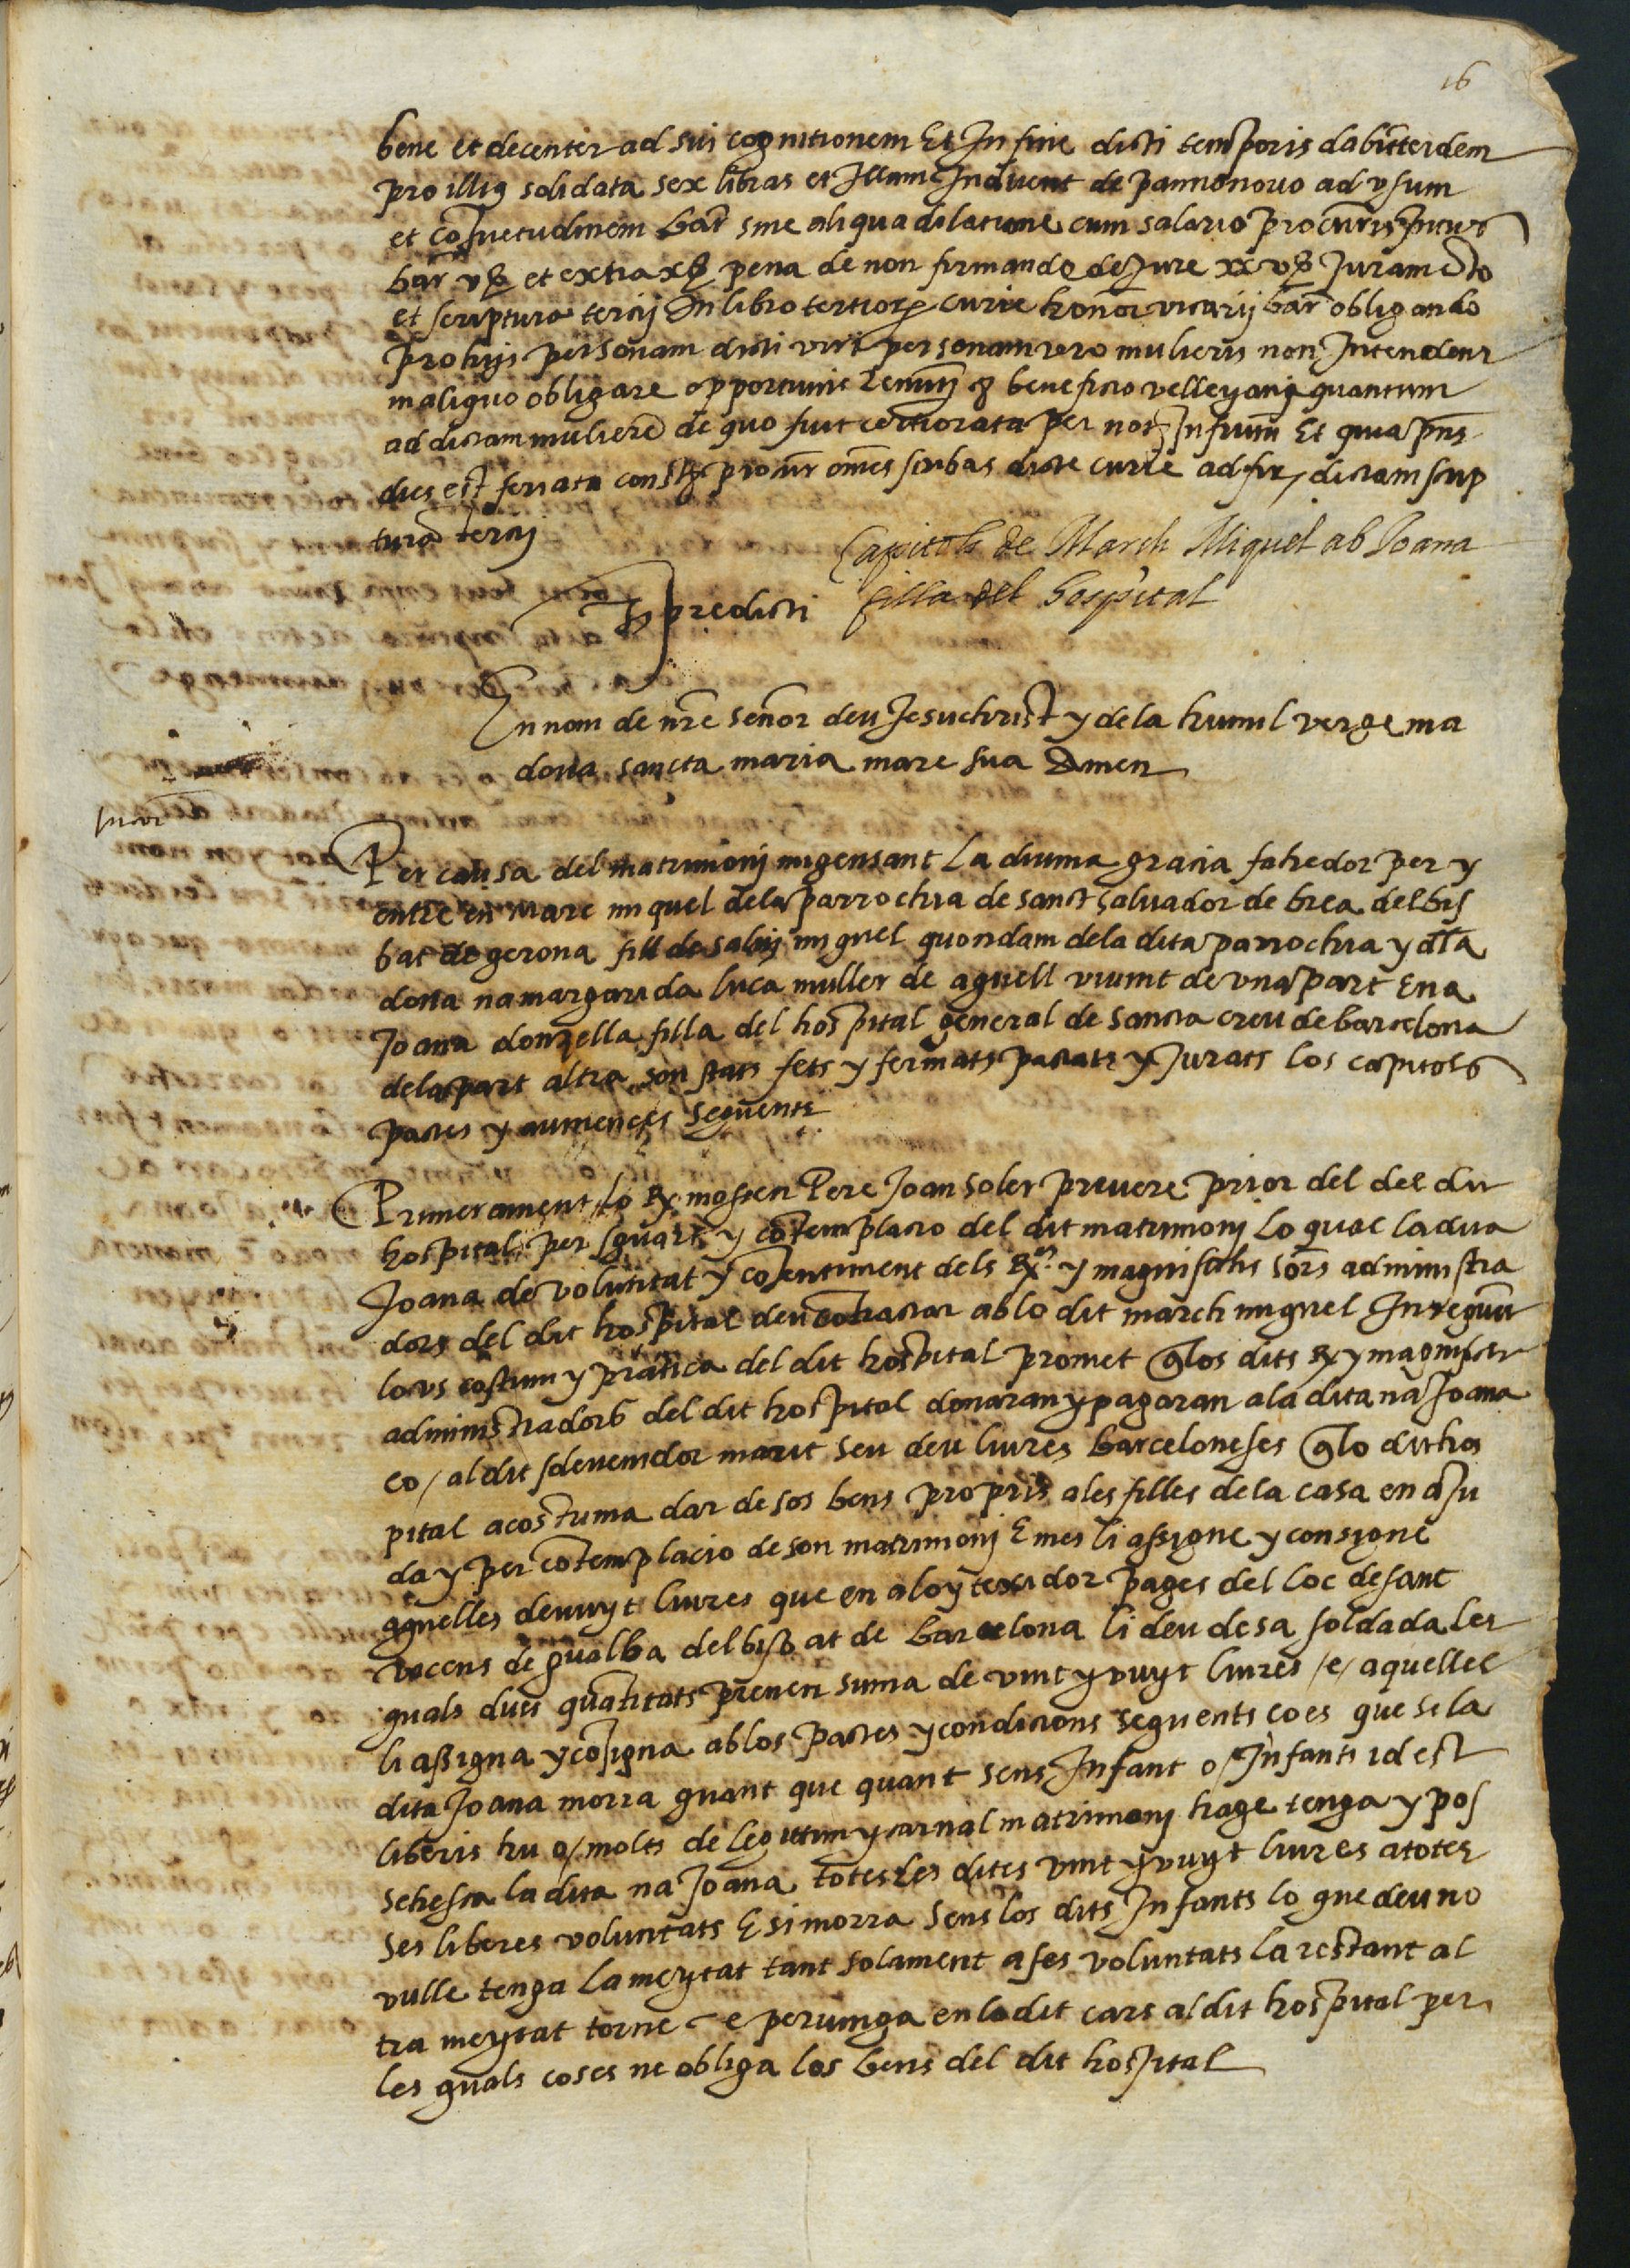 16
bene et decenter ad sui cognitionem Et In fine dicti temporis dabit eidem
pro illius solidata sex libras et Illam Induent de panno novo ad usum
et cosuetudinem bar sine aliqua dilatione cum salario procuris Intus
bar v ß et extra x ß pena de non firmando de Jure xx v ß Juramento
et scriptura tercij In libro tertiorum curie honor vicarij bar obligando
pro hijs personam dicti viri personam vero mulieris non Intendenr
in aliquo obligare opportune renunt beneficio velleyani quantum
ad dictam muliere de quo fuit certiorata per not Infrum Et quia pns
dies est feriata const procur omes scribas dicte curie ad fir dictam scrip
tura tercij
Capitols de March Miquel ab Joana
filla del hospital
Ts predicti
En nom de nre senor deu Jesuchrist y de la humil verge ma
dona sancta maria mare sua Amen
Per causa del matrimonj migensant la divina gracia fahedor per y
entre en marc miquel dela parrochia de sanct salvador de brea del bis
bat de gerona fill de salvi miquel quondam dela dita parrochia y dla
dona na margarida luca muller de aquell vivint de una part E na
Joana donzella filla del hospital general de sancta creu de barcelona
dela part altra son stats fets y fermats pactats y Jurats los capitols
pactes y avinences seguents
Primerament lo Rx mossen Pere Joan soler prevere prior del del dit
hospital per sguart y cotemplacio del dit matrimonj lo qual la dita
Joana de voluntat y cosentiment dels Rxs y magnifichs sors administra
dors del dit hospital deu cotractar ab lo dit march miquel Inseguit
lo us costum y pratica del dit hospital promet q los dits Rx y magnifichs
administradors del dit hospital donaran y pagaran a la dita na Joana
eo / al dit sdevenidor marit seu deu liures barceloneses q lo dit hos
pital acostuma dar de sos bens propris ales filles dela casa en aju
da y per cotemplacio de son matrimonj E mes li assigne y consigne
aquelles devuyt liures que en aloy texidor pages del loc de sant
vicens de gualba del bisbat de barcelona li deu de sa soldada les
quals dues quatitats prenen suma de vint y vuyt liures / e / aquelles
li assigna y cosigna ab los pactes y condicions seguents co es que si la
dita Joana morra quant que quant sens Infant o / Infants id est
liberis hu o / molts de legittim y carnal matrimonj hage tenga y pos
sehesca la dita na Joana totes les dites vint y vuyt liures a totes
ses liberes voluntats E si morra sens los dits Infants lo que deu no
vulle tenga la meytat tant solament a ses voluntats la restant al
tra meytat torne e pervinga en lo dit cars al dit hospital per
les quals coses ne obliga los bens del dit hospital